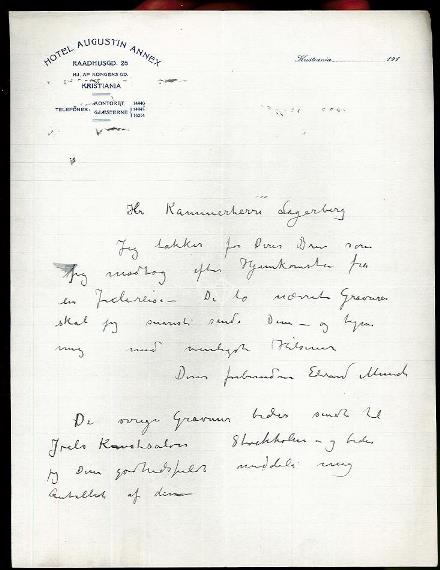 HOTEL AUGUSTIN ANNEX
RAADHUSGD. 25
HJ. AF KONGENS GD.
KRISTIANIA
TELEFONER: KONTORET 14440
GJÆSTERNE
Kristiania 191
Hr Kammerherre Lagerberg
Jeg takker for Deres Brev som
jeg modtog efter Hjemkomsten fra
en De to nævnte Gravurer
skal jeg snarest sende Dem – og tegner
mig med venligste Hilsener
Deres forbundne Edvard Munch
De øvrige Gravurer bedes sendt til
Stockholm – og bedes
jeg Dem godhedsfuldt meddele mig
Antallet af dem